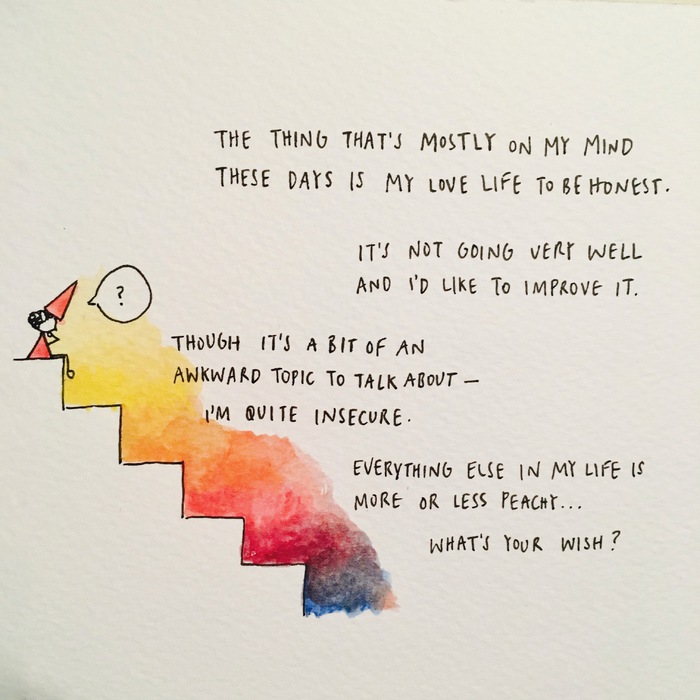 ?
THE THING THAT'S MOSTLY ON MY MIND
THESE DAYS IS MY LOVE LIFE TO BE HONEST.
IT'S NOT GOING VERY WELL
AND I'D LIKE TO IMPROVE IT.
THOUGH IT'S A BIT OF AN
AWKWARD TOPIC TO TALK ABOUT —
I'M QUITE INSECURE.
EVERYTHING ELSE IN MY LIFE IS
MORE OR LESS PEACHY...
WHAT'S YOUR WISH?